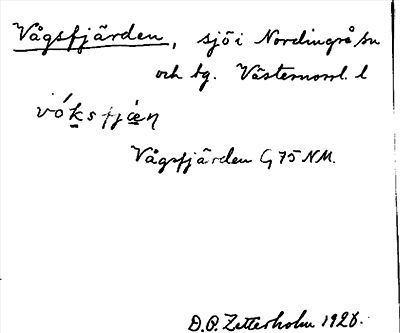 Vågsfjärden, sjö i Nordingrå sn
och tg. Västernorrl. l
vóksfjæ̣n
Vågsfjärden G 75 NM.
D.O. Zetterholm 1926.